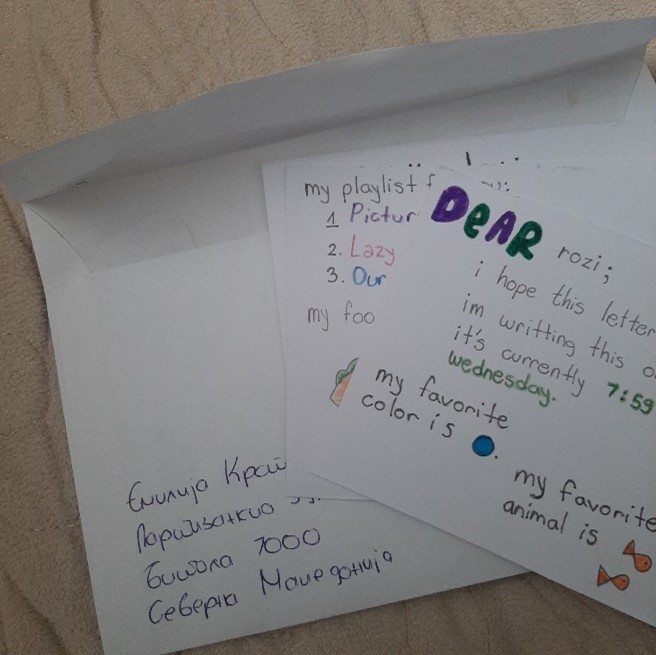 my playlist f
1 Pictur
2. Lazy
3. Our
my foo
DEAR rozi;
i hope this letter
im writting this o
it's currently 7:59
wednesday.
my favorite
color is
my favorite
animal is
Емилија Крај
Партизанска
Битола 7000
Северна Македонија